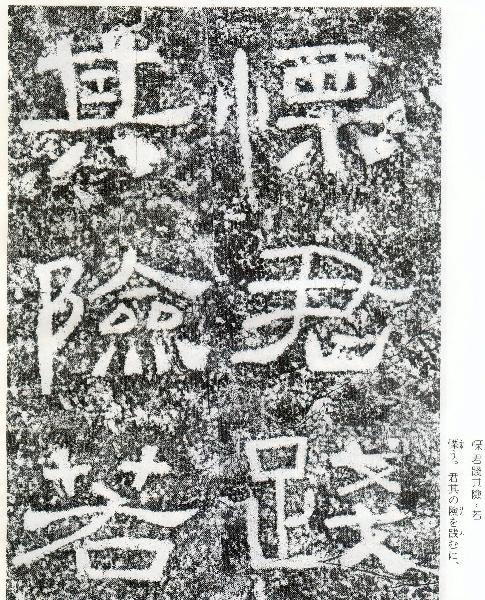 慄君踐
其險若
慄君踐其險・若
君其の險を践むに、